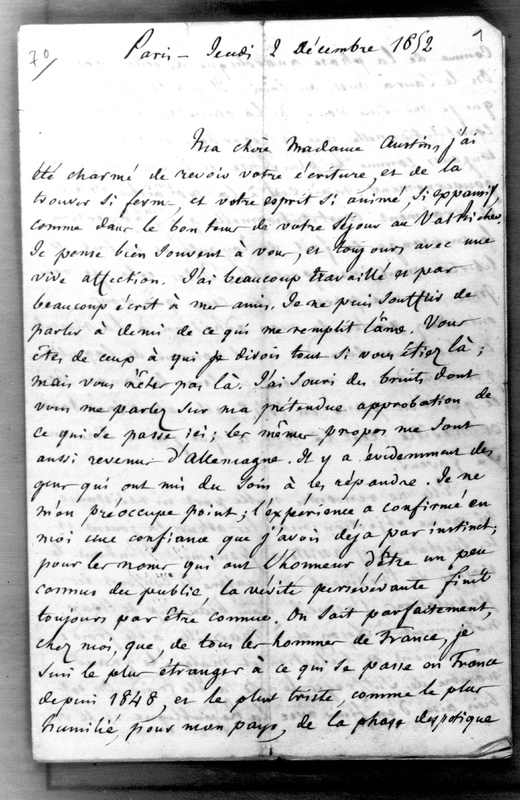 70/
1
Paris - Jeudi 2 Décembre 1852
Ma chère Madame Austin, j'ai
été charmé de revoir votre écriture, et de la
trouver si ferme, et votre esprit si animé, si
comme dans le bon tems de votre séjour au Val Richer.
Je pense bien souvent à vous, et toujours avec une
vive affection. J'ai beaucoup travaillé et pas
beaucoup écrit à mes amis. Je ne puis souffrir de
parler à demi de ce qui me remplit l'âme. Vous
êtes de ceux à qui je dirois tout si vous étiez là;
mais vous n'êtes pas là. J'ai souri des bruits dont
vous me parlez sur ma prétendue approbation de
ce qui se passe ici; les mêmes propos me sont
aussi revenus d'Allemagne. Il y a évidemment des
gens qui ont mis du soin à les répandre. Je ne
m'en préoccupe point; l'expérience a confirmé en
moi une confiance que j'avois déja par instinct;
pour les noms qui ont l'honneur d'être un peu
connus du public, la vérité persévérante finit
toujours par être connue. On sait parfaitement,
chez moi, que, de tous les hommes de France, je
suis le plus étranger à ce qui se passe en France
depuis 1848, et le plus triste, comme le plus
humilié, pour mon pays, de la phase despotique